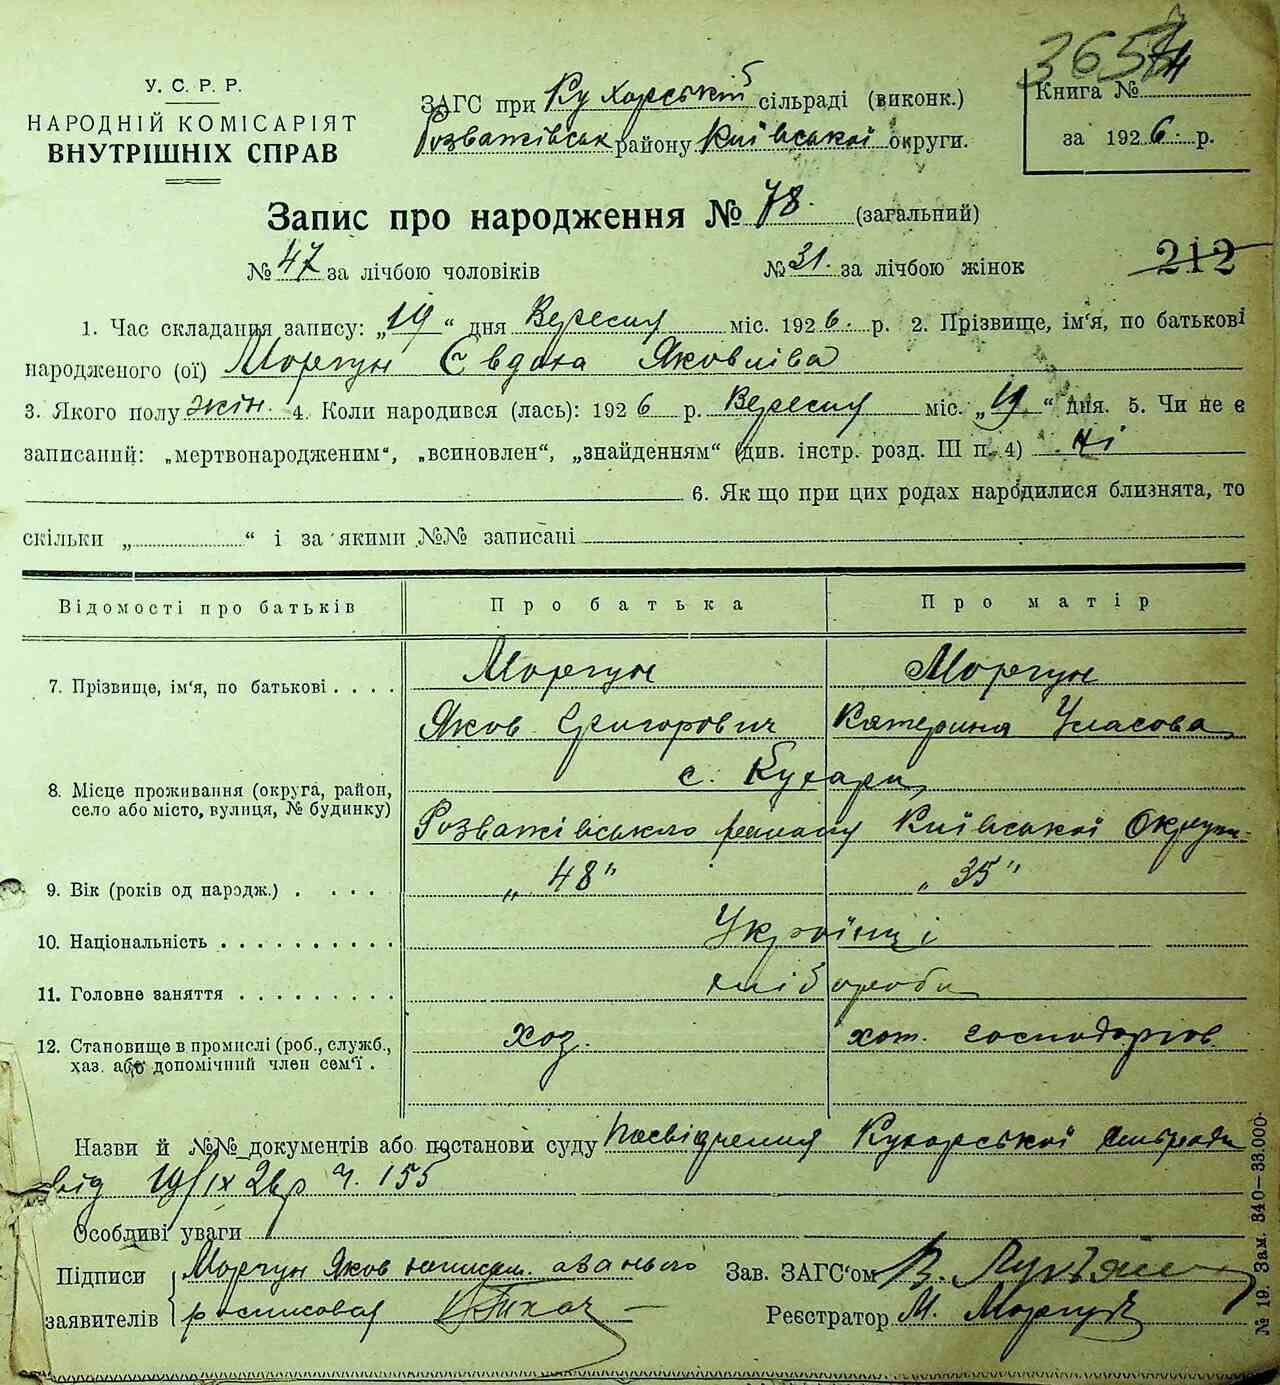 У. С. Р. Р.
НАРОДНІЙ КОМІСАРІЯТ
ВНУТРІШНІХ СПРАВ
ЗАГС при Кухорській сільраді (виконк.)
Розважівськ району Київської округи.
Книга №
за 1926 р.
Запис про народження № 78. (загальний)
№ 47 за лічбою чоловіків № 31. за лічбою жінок
212
1. Час складання запису: „19“ дня Вересня міс. 1926. р. 2. Прізвище, ім'я, по батькові
народженого (ої) Моргун Євдоха Яковліва
3. Якого полу жін. 4. Коли народився (лась): 1926 р. Вересня міс. „19“ дня. 5. Чи не є
записаний: „мертвонародженим“, „всиновлен“, „знайденням“ (див. інстр. розд. III п. 4) ні
6. Як що при цих родах народилися близнята, то
скільки „ “ і за якими №№ записані
Відомості про батьків Про батька Про матір
7. Прізвище, ім'я, по батькові . . . . Моргун Моргун
Яков Григорович Катерина Уласова
8. Місце проживання (округа, район, село або місто, вулиця, № будинку) с. Кухари
Розважівського району Київської Округи
9. Вік (років од народж.) . . . . „48“ „35“
10. Національність . . . . . . . . . . Українці
11. Головне заняття . . . . . . . . . хлібороби
12. Становище в промислі (роб., служб., хаз. або допомічний член сем'ї . хоз.
Назви й №№ документів або постанови суду Посвідчення Кухарської сільради
від 19/IX 26 р ч. 155
Особливі уваги
Підписи Моргун Яков неписм. а за нього
заявителів росписовая
Зав. ЗАГС'ом В.
Реєстратор М. Моргун
№ 19. Зам. 340—33.000